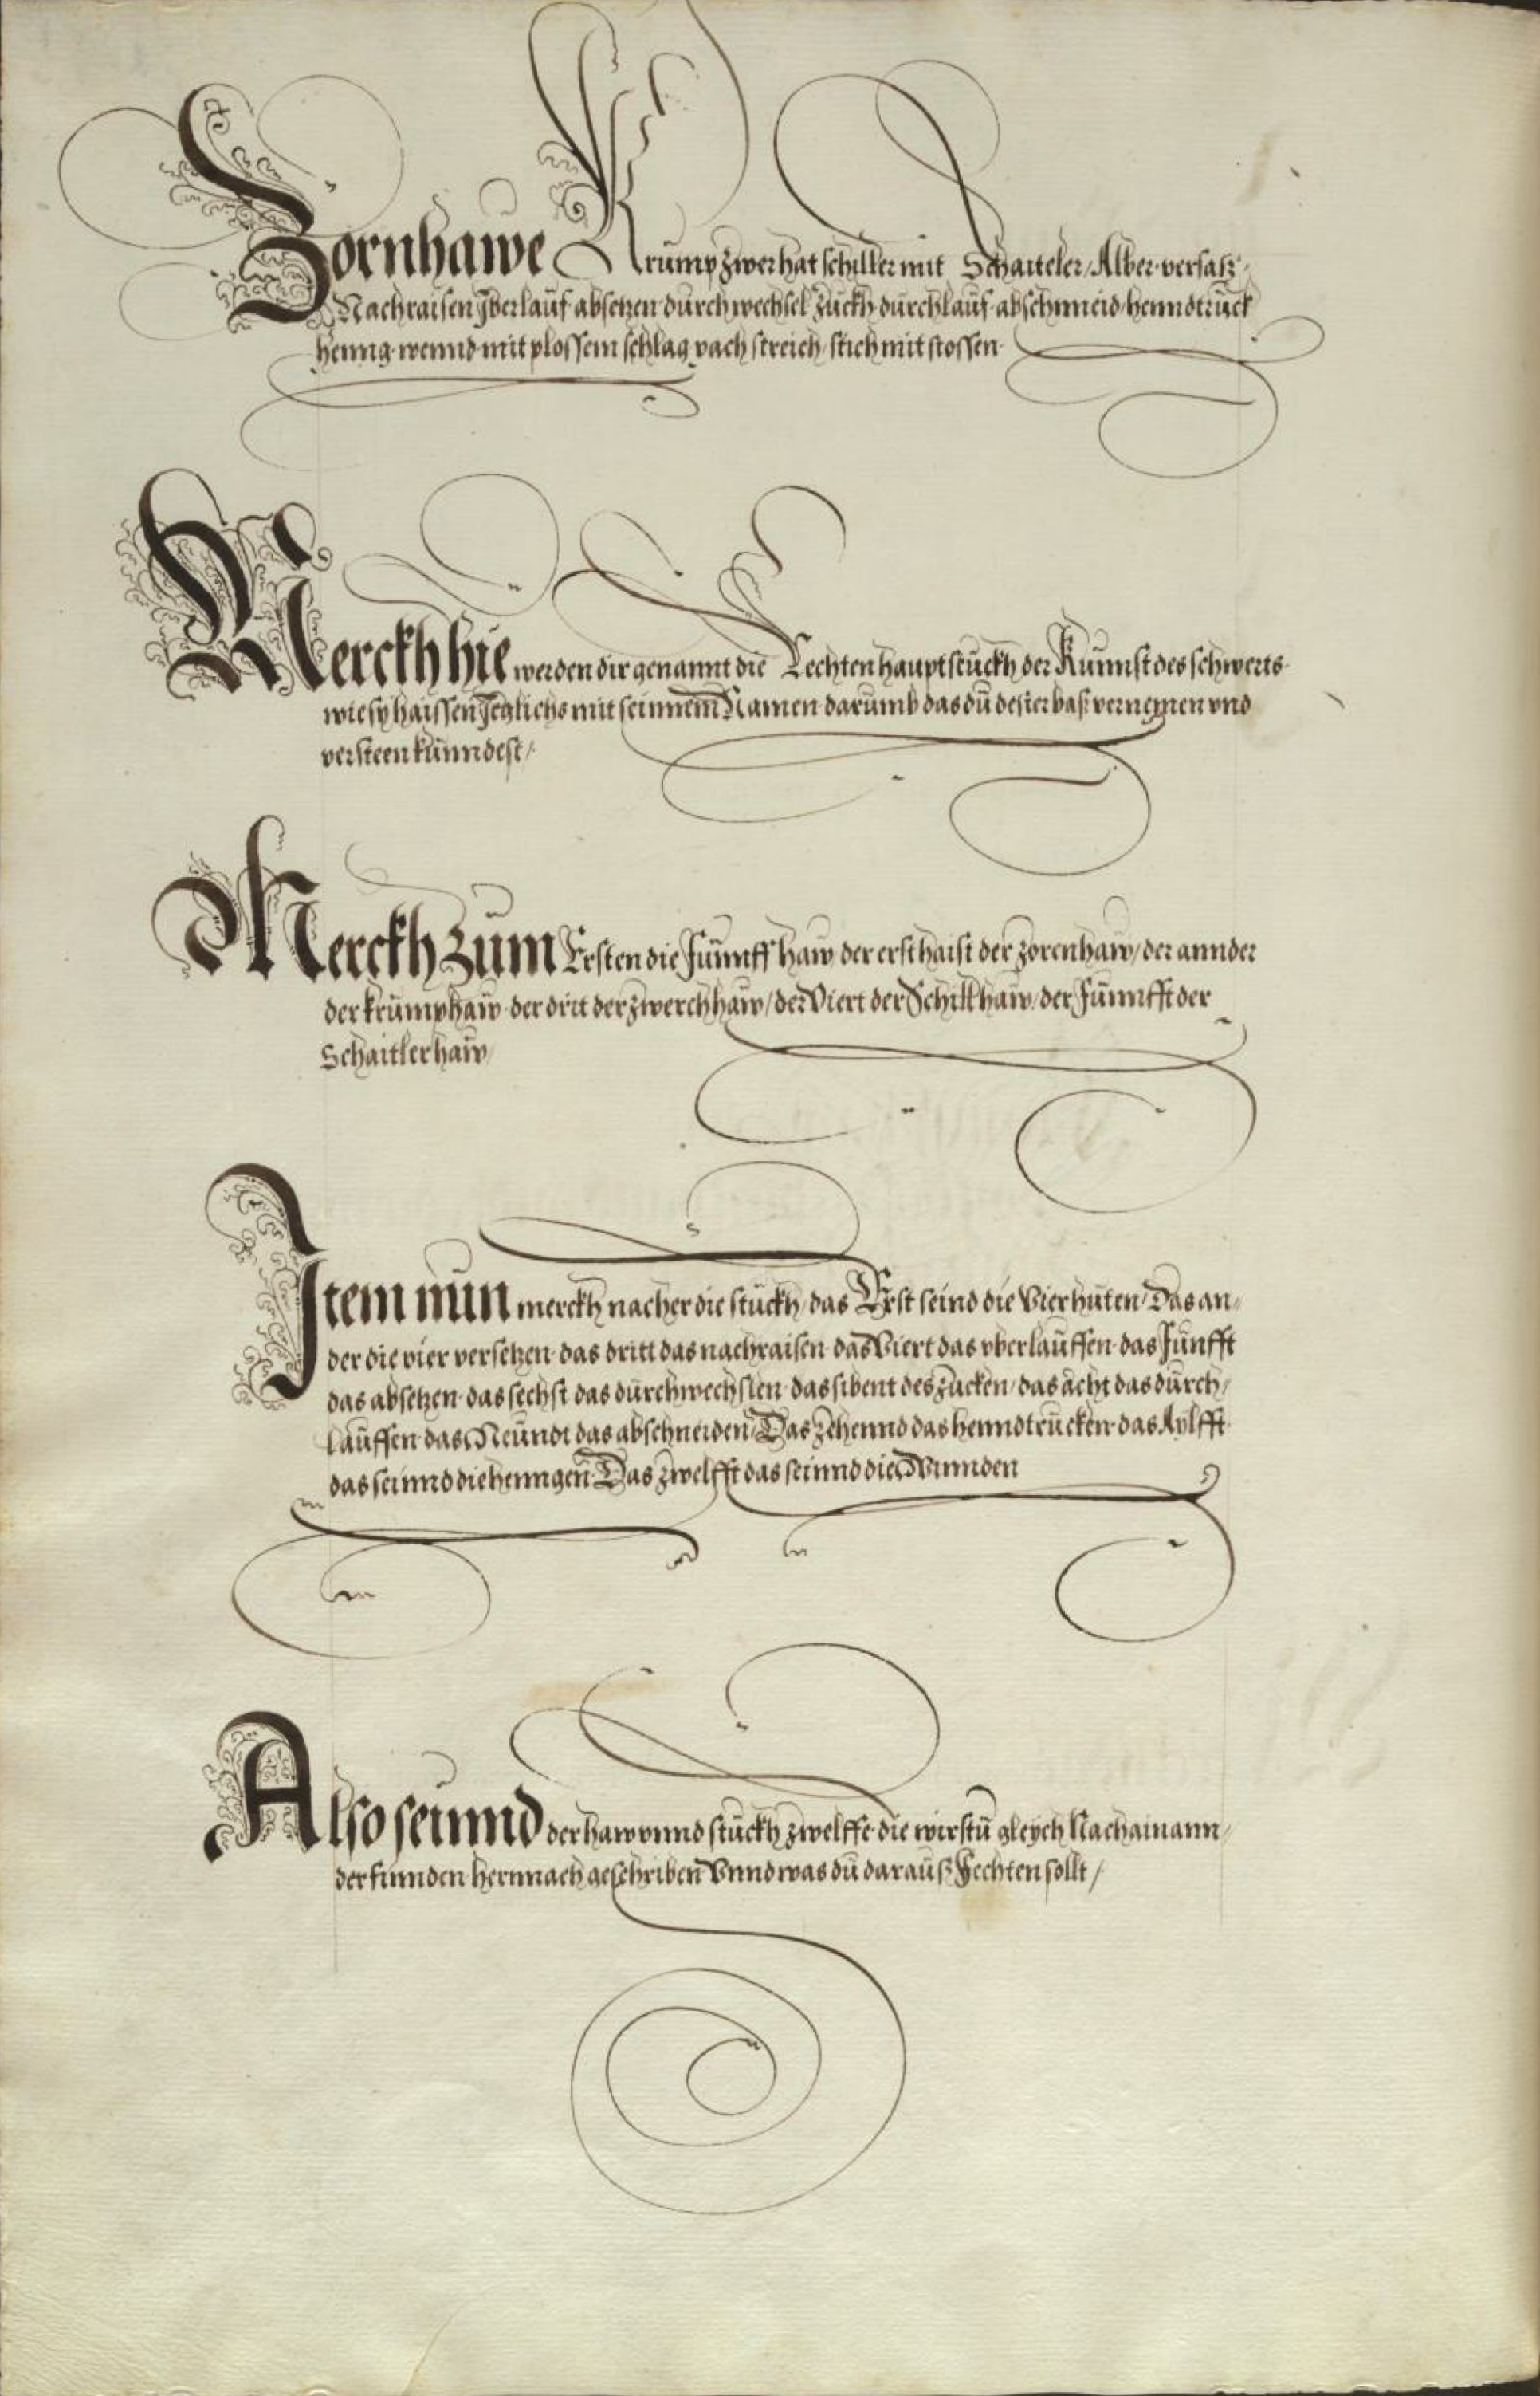 Zornhawe Krŭmp zwer hat schiller mit Schaiteler / Alber versatz
Nachraisen Jberlaŭf absetzen dŭrchwechsel Zŭckh dŭrchlaŭf abschneid / henndtrŭck
henng wennd mit plossem schlag vach streich / stich mit stossen
Merckh hie werden dir genannt die Rechten haŭptstŭckh der Kŭnnst des schwerts
wie sy haissen Jeglichs mit seinnem Namen darŭmb das dŭ desterbaß vernemen vnd
versteen kŭnndest /
Merckh Zŭm Ersten die Fŭnnff haw der erst haist der zorenhaw / der annder
der krŭmphaw der drit der zwerchhaw / der Viert der Schilthaw der Fŭnnfft der
Schaitlerhaw
Item nŭn merckh nacher die stŭckh / das Erst seind die Vier hŭten Das an⸗
der die vier versetzen das dritt das nachraisen das Viert das vberlaŭffen das Fŭnfft
das absetzen das sechst das dŭrchwechslen das sibent des zŭcken / das acht das dŭrch /
laŭffen das Neŭndt das abschneiden Das Zehennd das henndtrŭcken das Aylfft
das seinnd die henngen Das zwelfft das seinnd die Wŭnnden
Also seinnd der haw vnnd stŭckh zwelffe die wirstŭ gleych Nachainann⸗
der finnden hernnach geschriben Vnnd was dŭ daraŭß Fechten sollt /